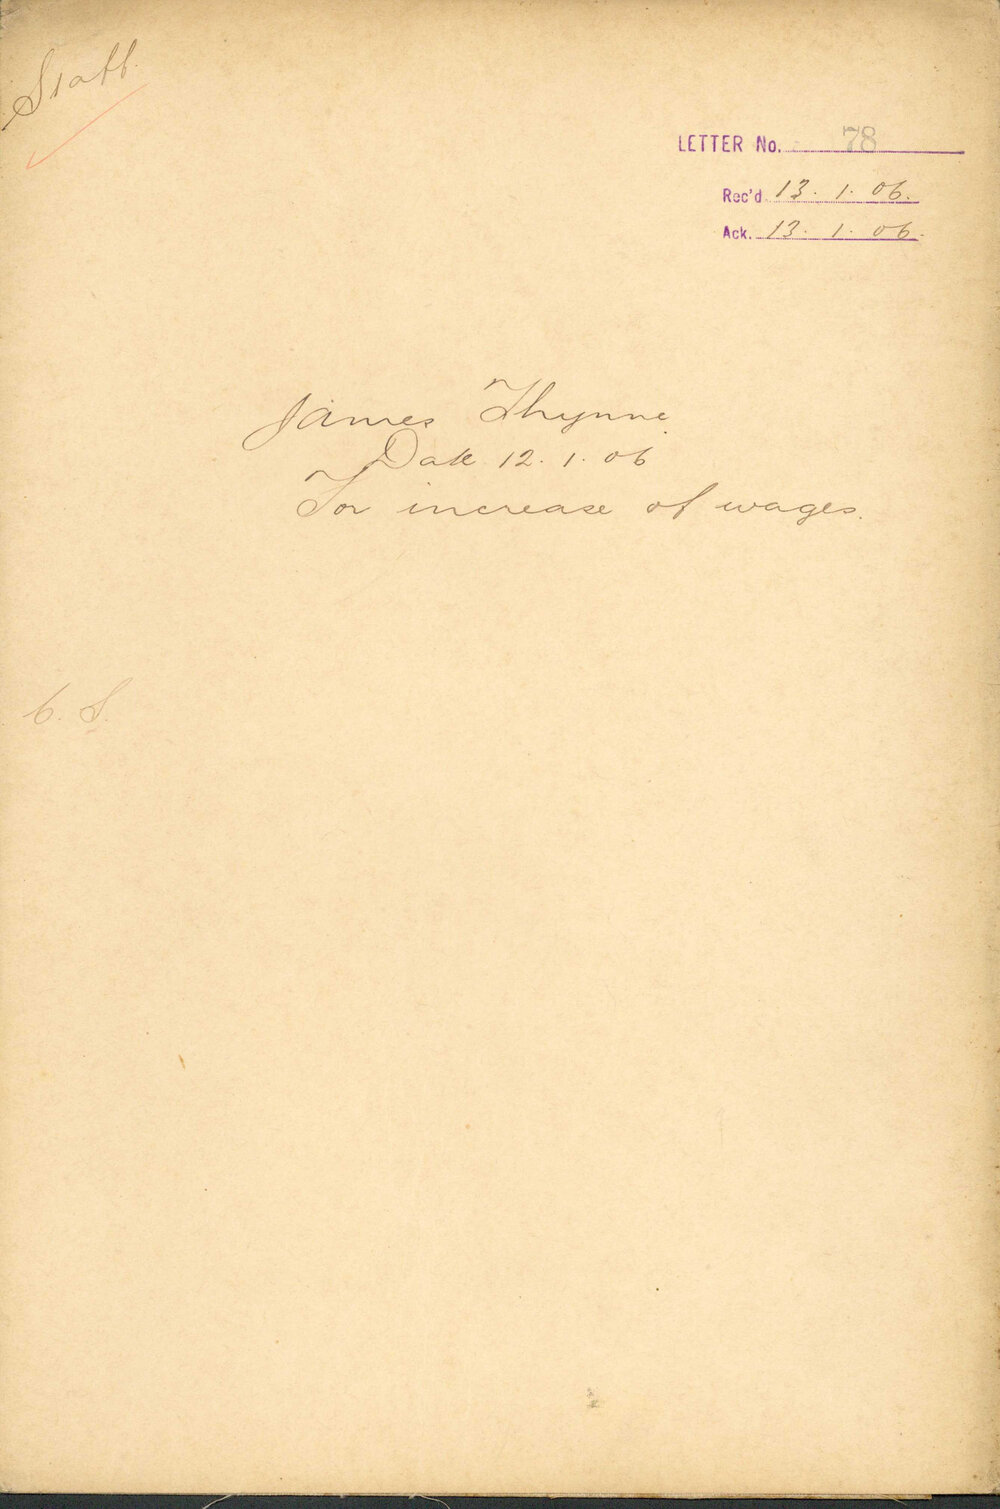 Staff.
LETTER No. 78
Rec'd 13. 1. 06.
Ack. 13. 1. 06.
James Thynne.
Date 12. 1. 06
For increase of wages.
C. S.